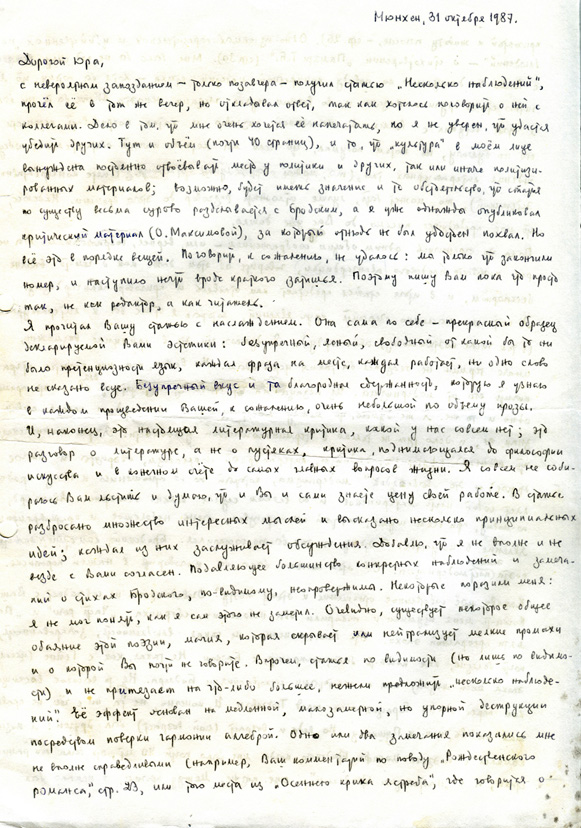 Мюнхен, 31 октября 1987.
Дорогой Юра,
с невероятным запозданием – только позавчера – получил статью „Несколько наблюдений",
прочёл её в тот же вечер, но откладывал ответ, так как хотелось поговорить о ней с
коллегами. Дело в том, что мне очень хочется её напечатать, но я не уверен, что удастся
убедить других. Тут и объём (почти 40 страниц), и то, что „культура" в моём лице
вынуждена постоянно отвоёвывать место у политики и других, так или иначе политизи-
рованных материалов; возможно, будет иметь значение и то обстоятельство, что статья
по существу весьма сурово разделывается с Бродским, а я уже однажды опубликовал
критический материал (О. Максимовой), за который отнюдь не был удостоен похвал. Но
всё это в порядке вещей. Поговорить, к сожалению, не удалось: мы только что закончили
номер, и наступило нечто вроде краткого затишья. Поэтому пишу Вам пока что просто
так, не как редактор, а как читатель.
Я прочитал Вашу статью с наслаждением. Она сама по себе – прекрасный образец
декларируемой Вами эстетики: безупречный, ясный, свободный от какой бы то ни
было претенциозности язык, каждая фраза на месте, каждая работает, ни одно слово
не сказано всуе. Безупречный вкус и та благородная сдержанность, которую я узнаю
в каждом произведении Вашей, к сожалению, очень небольшой по объёму прозы.
И, наконец, это настоящая литературная критика, какой у нас совсем нет; это
разговор о литературе, а не о пустяках, критика, поднимающаяся до философии
искусства и в конечном счёте до самых главных вопросов жизни. Я совсем не соби-
раюсь Вам льстить и думаю, что и Вы и сами знаете цену своей работе. В статье
разбросано множество интересных мыслей и высказано несколько принципиальных
идей; каждая из них заслуживает обсуждения. Добавлю, что я не вполне и не
везде с Вами согласен. Подавляющее большинство конкретных наблюдений и замеча-
ний о стихах Бродского, по-видимому, неопровержимо. Некоторые поразили меня:
я не мог понять, как я сам этого не заметил. Очевидно, существует некоторое общее
обаяние этой поэзии, магия, которая скрывает или нейтрализует мелкие промахи
и о которой Вы почти не говорите. Впрочем, статья по видимости (но лишь по видимо-
сти) и не притязает на что-либо большее, нежели предложить „несколько наблюде-
ний". Её эффект основан на медленной, малозаметной, но упорной деструкции
посредством поверки гармонии алгеброй. Одно или два замечания показались мне
не вполне справедливыми (например, Ваш комментарий по поводу „Рождественского
романса", стр. 23, или того места из „Осеннего крика ястреба", где говорится о